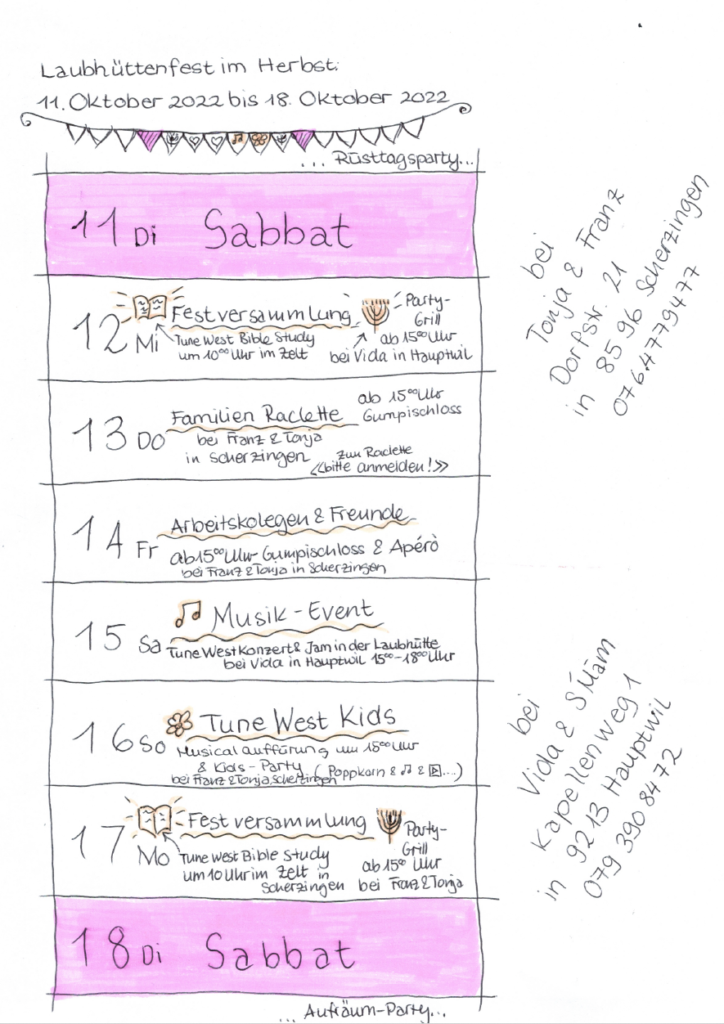 Laubhüttenfest im Herbst:
11. Oktober 2022 bis 18. Oktober 2022
... Rüsttagsparty...
11 Di Sabbat
12 Mi Festversammlung
Tune West Bible Study
um 10⁰⁰ Uhr im Zelt
Party-
Grill
ab 15⁰⁰ Uhr
bei Vida in Hauptwil
13 Do Familien Raclette
bei Franz & Tonja
in Scherzingen
ab 15⁰⁰ Uhr
Gumpischloss
zum Raclette
<<bitte anmelden!>>
14 Fr Arbeitskolegen & Freunde
ab 15⁰⁰ Uhr Gumpischloss & Apérò
bei Franz & Tonja in Scherzingen
15 Sa Musik-Event
Tune West Konzert & Jam in der Laubhütte
bei Vida in Hauptwil 15⁰⁰-18⁰⁰ Uhr
16 So Tune West Kids
Musical Auffürung um 15⁰⁰ Uhr
& Kids-Party (Poppkorn & ♫ & ▶....)
bei Franz & Tonja, Scherzingen
17 Mo Festversammlung
Tune West Bible Study
um 10 Uhr im Zelt in
Scherzingen
Party-
Grill
ab 15⁰⁰ Uhr
bei Franz & Tonja
18 Di Sabbat
... Aufräum-Party...
bei
Tonja & Franz
Dorfstr. 21
in 8596 Scherzingen
0764779477
bei
Vida & S'Mäm
Kapellenweg 1
in 9213 Hauptwil
079 390 84 72